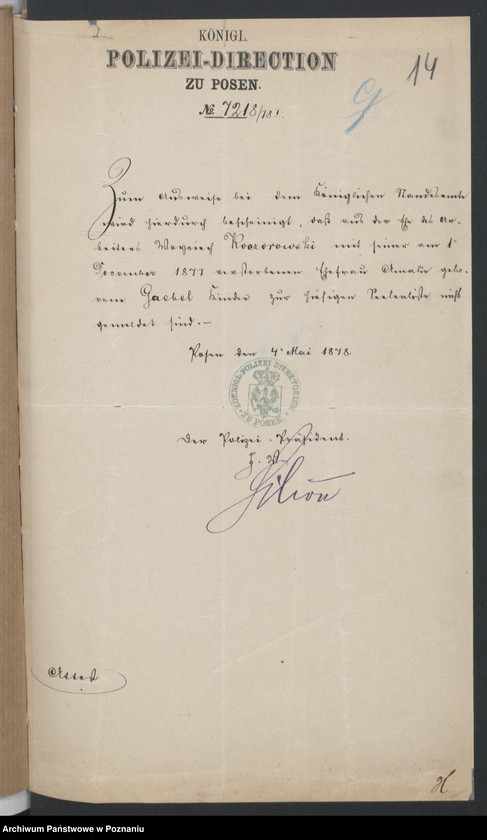 14
KÖNIGL.
POLIZEI-DIRECTION
ZU POSEN.
№ 7218/78 I.
Zum Ausweise bei dem Königlichen Standesamte
wird hierdurch bescheinigt, daß aus der Ehe des Ar-
beiters Woyciech Kozorowski mit seiner am 1t
December 1877 verstorbenen Ehefrau Amalie gebo-
rene Gaebel Kinder zur hiesigen Seelenliste nicht
gemeldet sind. –
Posen den 4t Mai 1878.
KOENIGL. POLIZEI DIRECTORIUM
ZU POSEN
Der Polizei-Präsident.
J. V.
Attest
Archiwum Państwowe w Poznaniu